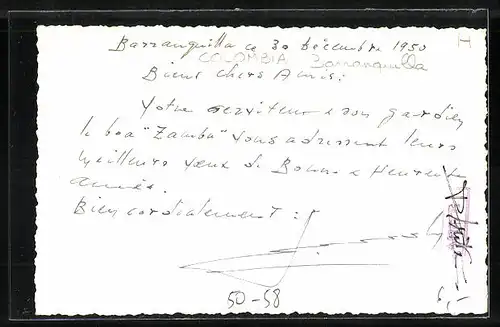 Barranquilla ce 30 décembre 1950
COLOMBIA Barranquilla
Biens chers Amis:
Votre serviteur & son gardien
le boa "Zamba" vous adressent leurs
meilleurs voeux de Bonne & Heureuse
année.
Bien cordialement:
50-58
6,-